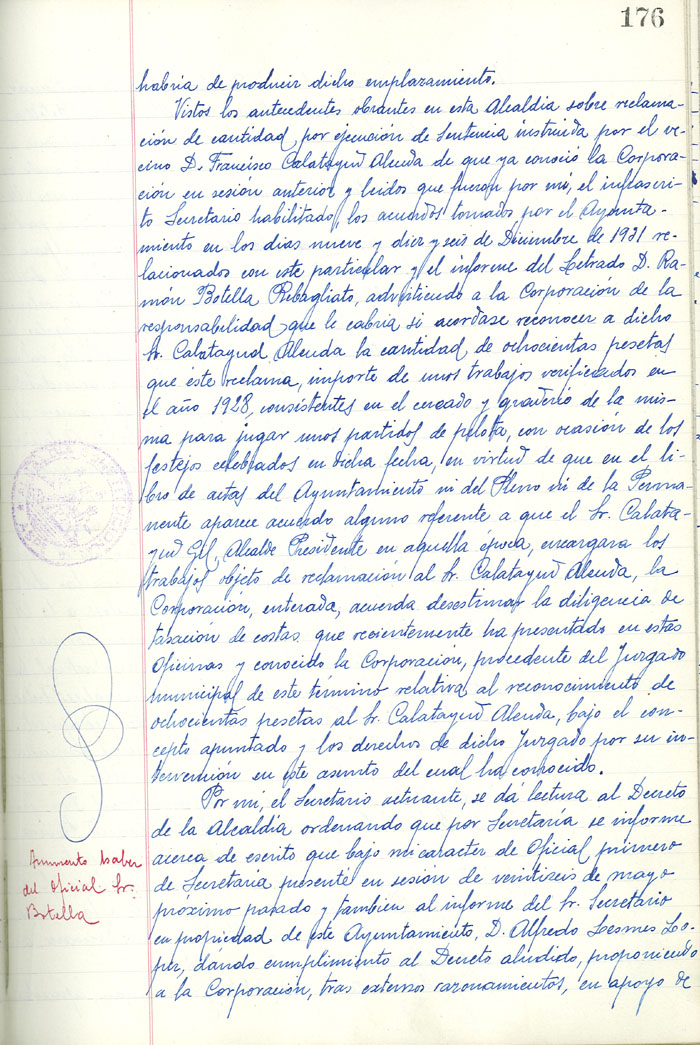 176
habría de producir dicho emplazamiento.
Vistos los antecedentes obrantes en esta Alcaldía sobre reclama-
ción de cantidad por ejecución de Sentencia instruida por el ve-
cino D. Francisco Calatayud Alenda de que ya conoció la Corpora-
ción en sesión anterior y leidos que fueron por mí, el infrascri-
to Secretario habilitado, los acuerdos tomados por el Ayunta-
miento en los días nueve y diez y seis de Diciembre de 1931 re-
lacionados con este particular y el informe del Letrado D. Ra-
món Botella Rebagliato, advirtiendo a la Corporación de la
responsabilidad que le cabría si acordase reconocer a dicho
Sr. Calatayud Alenda la cantidad de ochocientas pesetas
que éste reclama, importe de unos trabajos verificados en
el año 1928, consistentes en el cercado y graderío de la mis-
ma para jugar unos partidos de pelota, con ocasión de los
festejos celebrados en dicha fecha, en virtud de que en el li-
bro de actas del Ayuntamiento ni del Pleno ni de la Perma-
nente aparece acuerdo alguno referente a que el Sr. Calata-
yud Gil, Alcalde Presidente en aquella época, encargara los
trabajos objeto de reclamación al Sr. Calatayud Alenda, la
Corporación, enterada, acuerda desestimar la diligencia de
tasación de costas que recientemente ha presentado en estas
Oficinas y conocido la Corporación, procedente del Juzgado
municipal de este término relativa al reconocimiento de
ochocientas pesetas al Sr. Calatayud Alenda, bajo el con-
cepto apuntado y los derechos de dicho Juzgado por su in-
tervención en este asunto del cual ha conocido.
Por mí, el Secretario actuante, se dá lectura al Decreto
de la Alcaldía ordenando que por Secretaría se informe
acerca de escrito que bajo mi caracter de Oficial primero
de Secretaría presenté en sesión de veintiseis de mayo
próximo pasado y tambien al informe del Sr. Secretario
en propiedad de este Ayuntamiento, D. Alfredo Lesmes Lo-
pez, dando cumplimiento al Decreto aludido, proponiendo
a la Corporación, tras extensos razonamientos, en apoyo de
Aumento haber
del Oficial Sr.
Botella
ALCALDIA